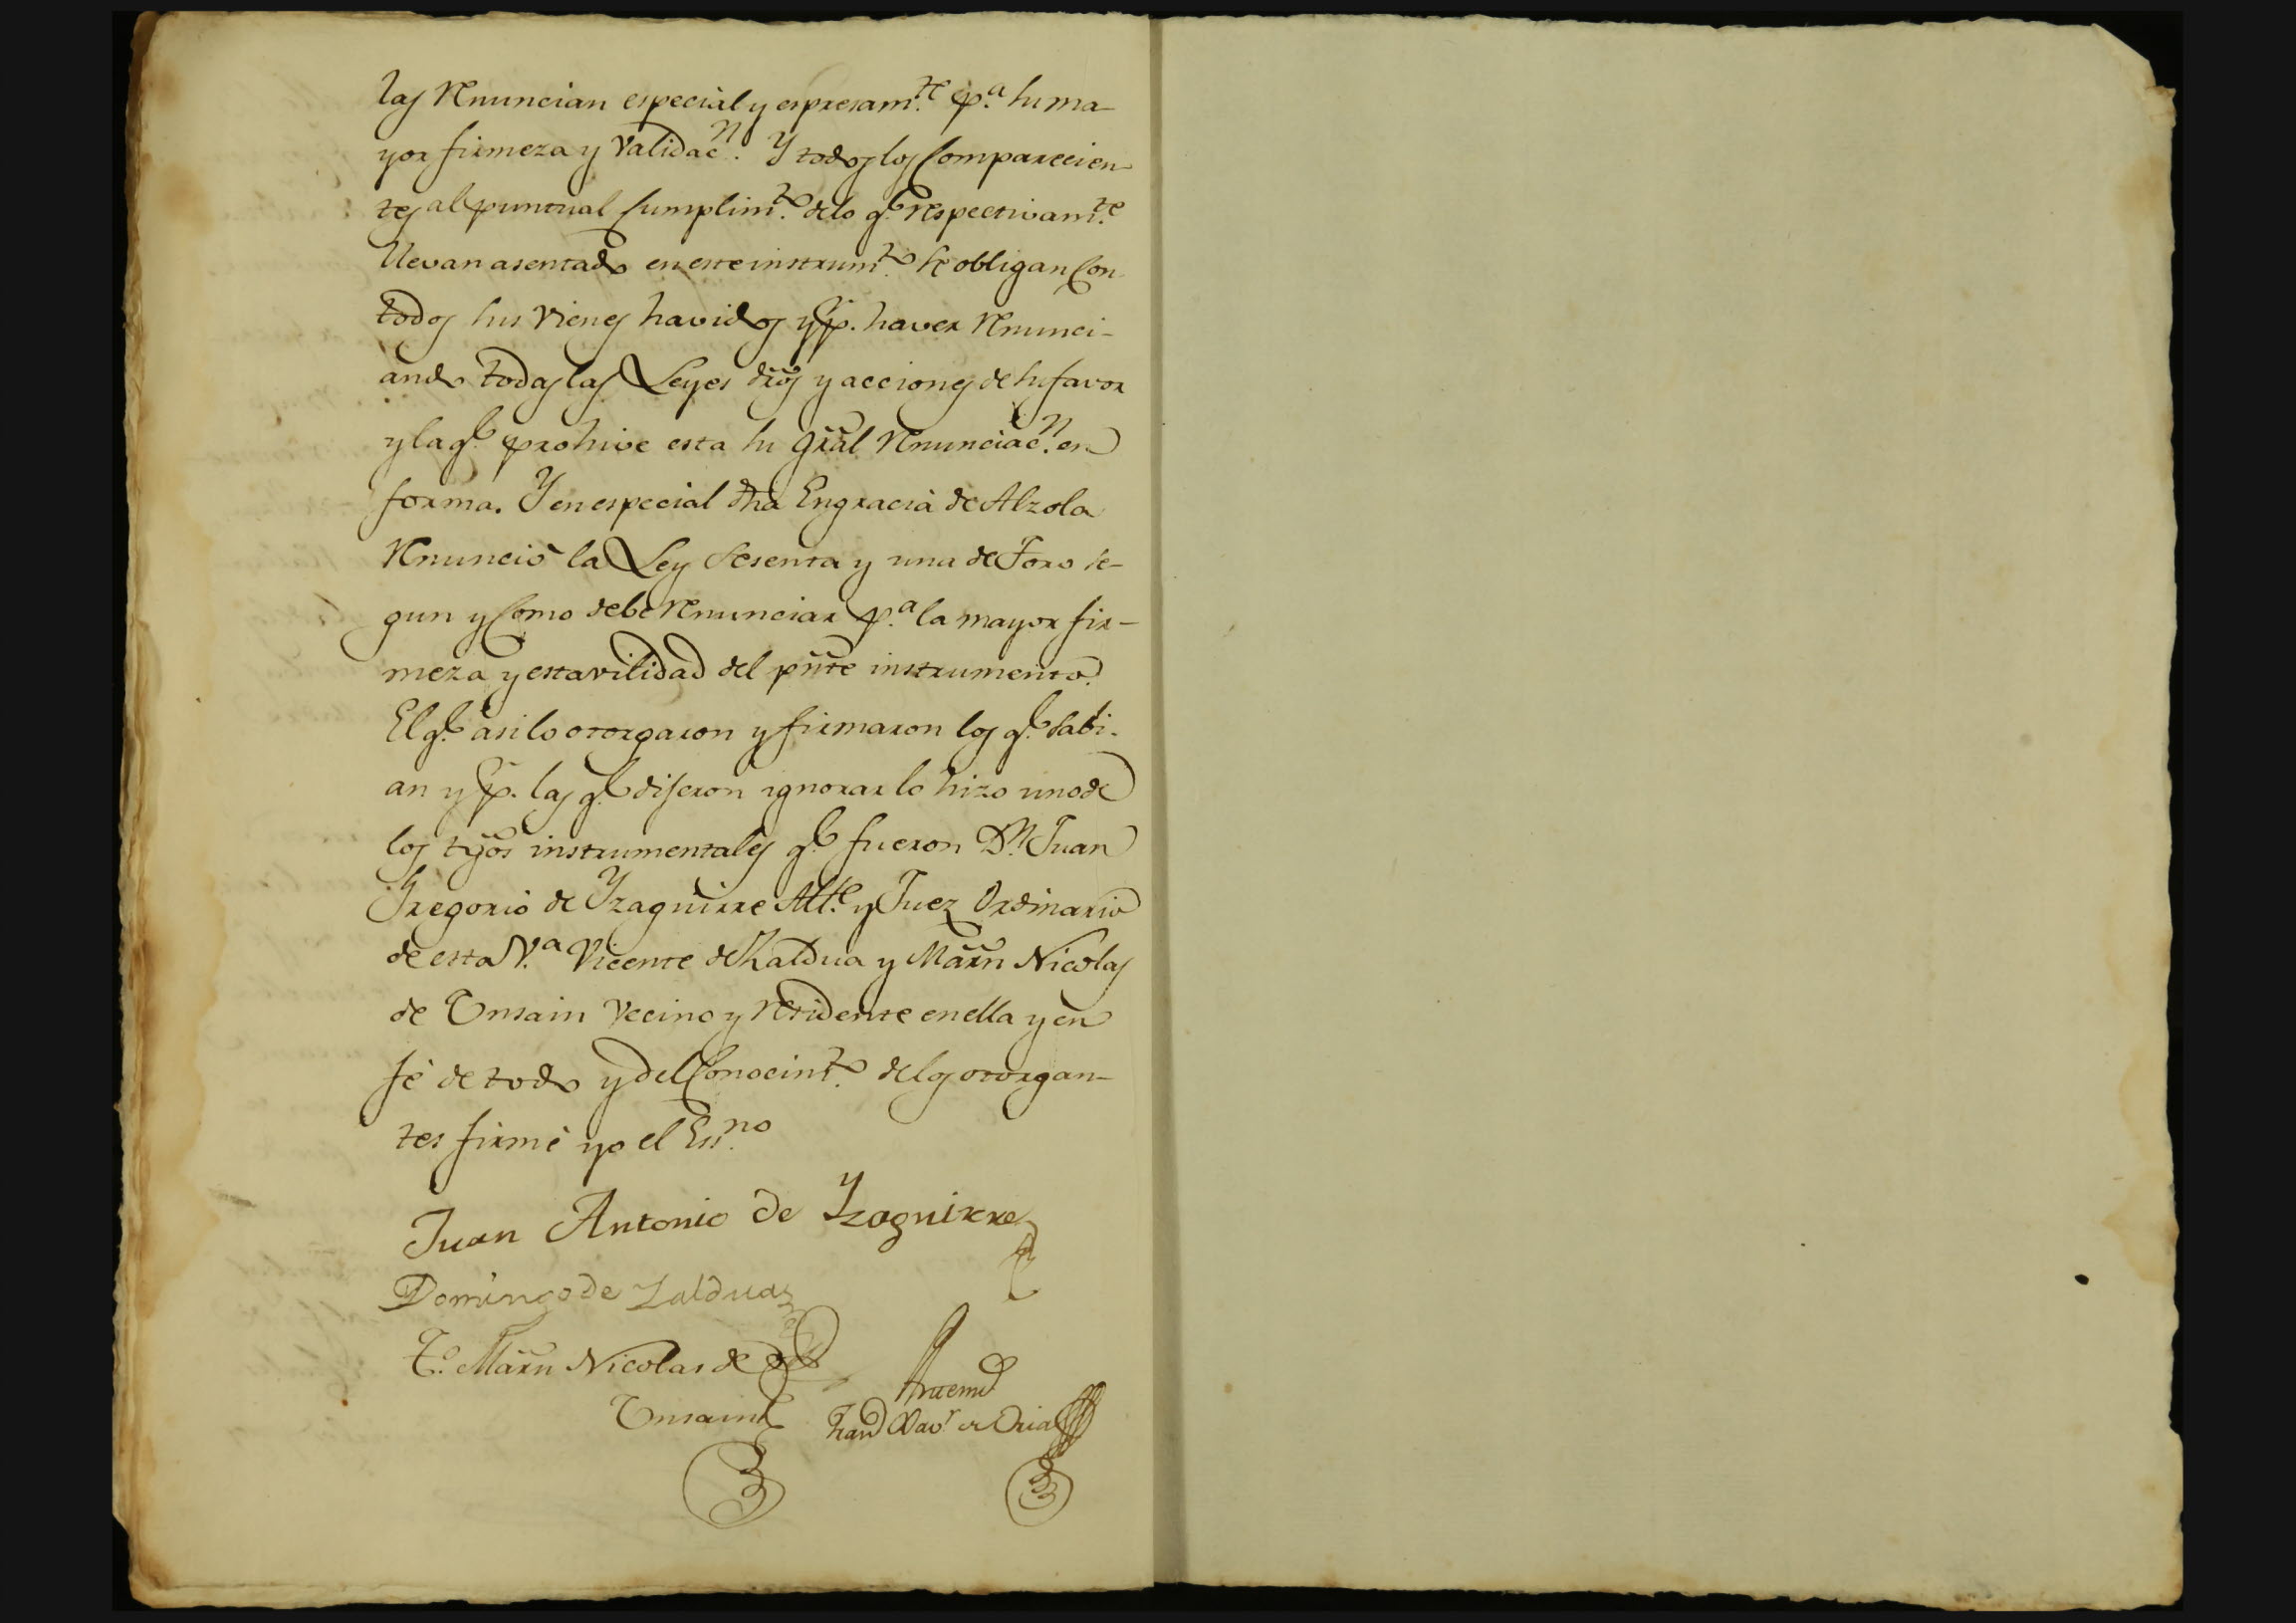 las renuncian especial y espresam.te p.a su ma-
yor firmeza y validac.n Y todos los Comparecien-
tes al puntual Cumplim.to de lo q.e respectivam.te
llevan asentado en este instrum.to se obligan Con
todos sus vienes havidos y p.r haver renunci-
ando todas las Leyes dros y acciones de su favor
y la q.e prohive esta su gral renunciac.n en
forma. Y en especial dha Engracia de Alzola
renunció la Ley Sesenta y una de Toro se-
gun y Como debe renunciar p.a la mayor fir-
meza y estavilidad del pnte instrumento.
El q.e asi lo otorgaron y firmaron los q.e sabi-
an y p.r las q.e dijeron ignorar lo hizo uno de
los tgos instrumentales q.e fueron D.n Juan
Gregorio de Yzaguirre Alc.e y Juez Ordinario
de esta V.a Vicente de Zaldua y Marn Nicolas
de Unsain vecino y residente en ella y en
fé de todo y del Conocim.to de los otorgan-
tes firmé yo el Ess.no
Juan Antonio de Yzaguirre
Domingo de Zaldua
T.o Marn Nicolas de
Unsain
Antemi
Xav.r de Oria